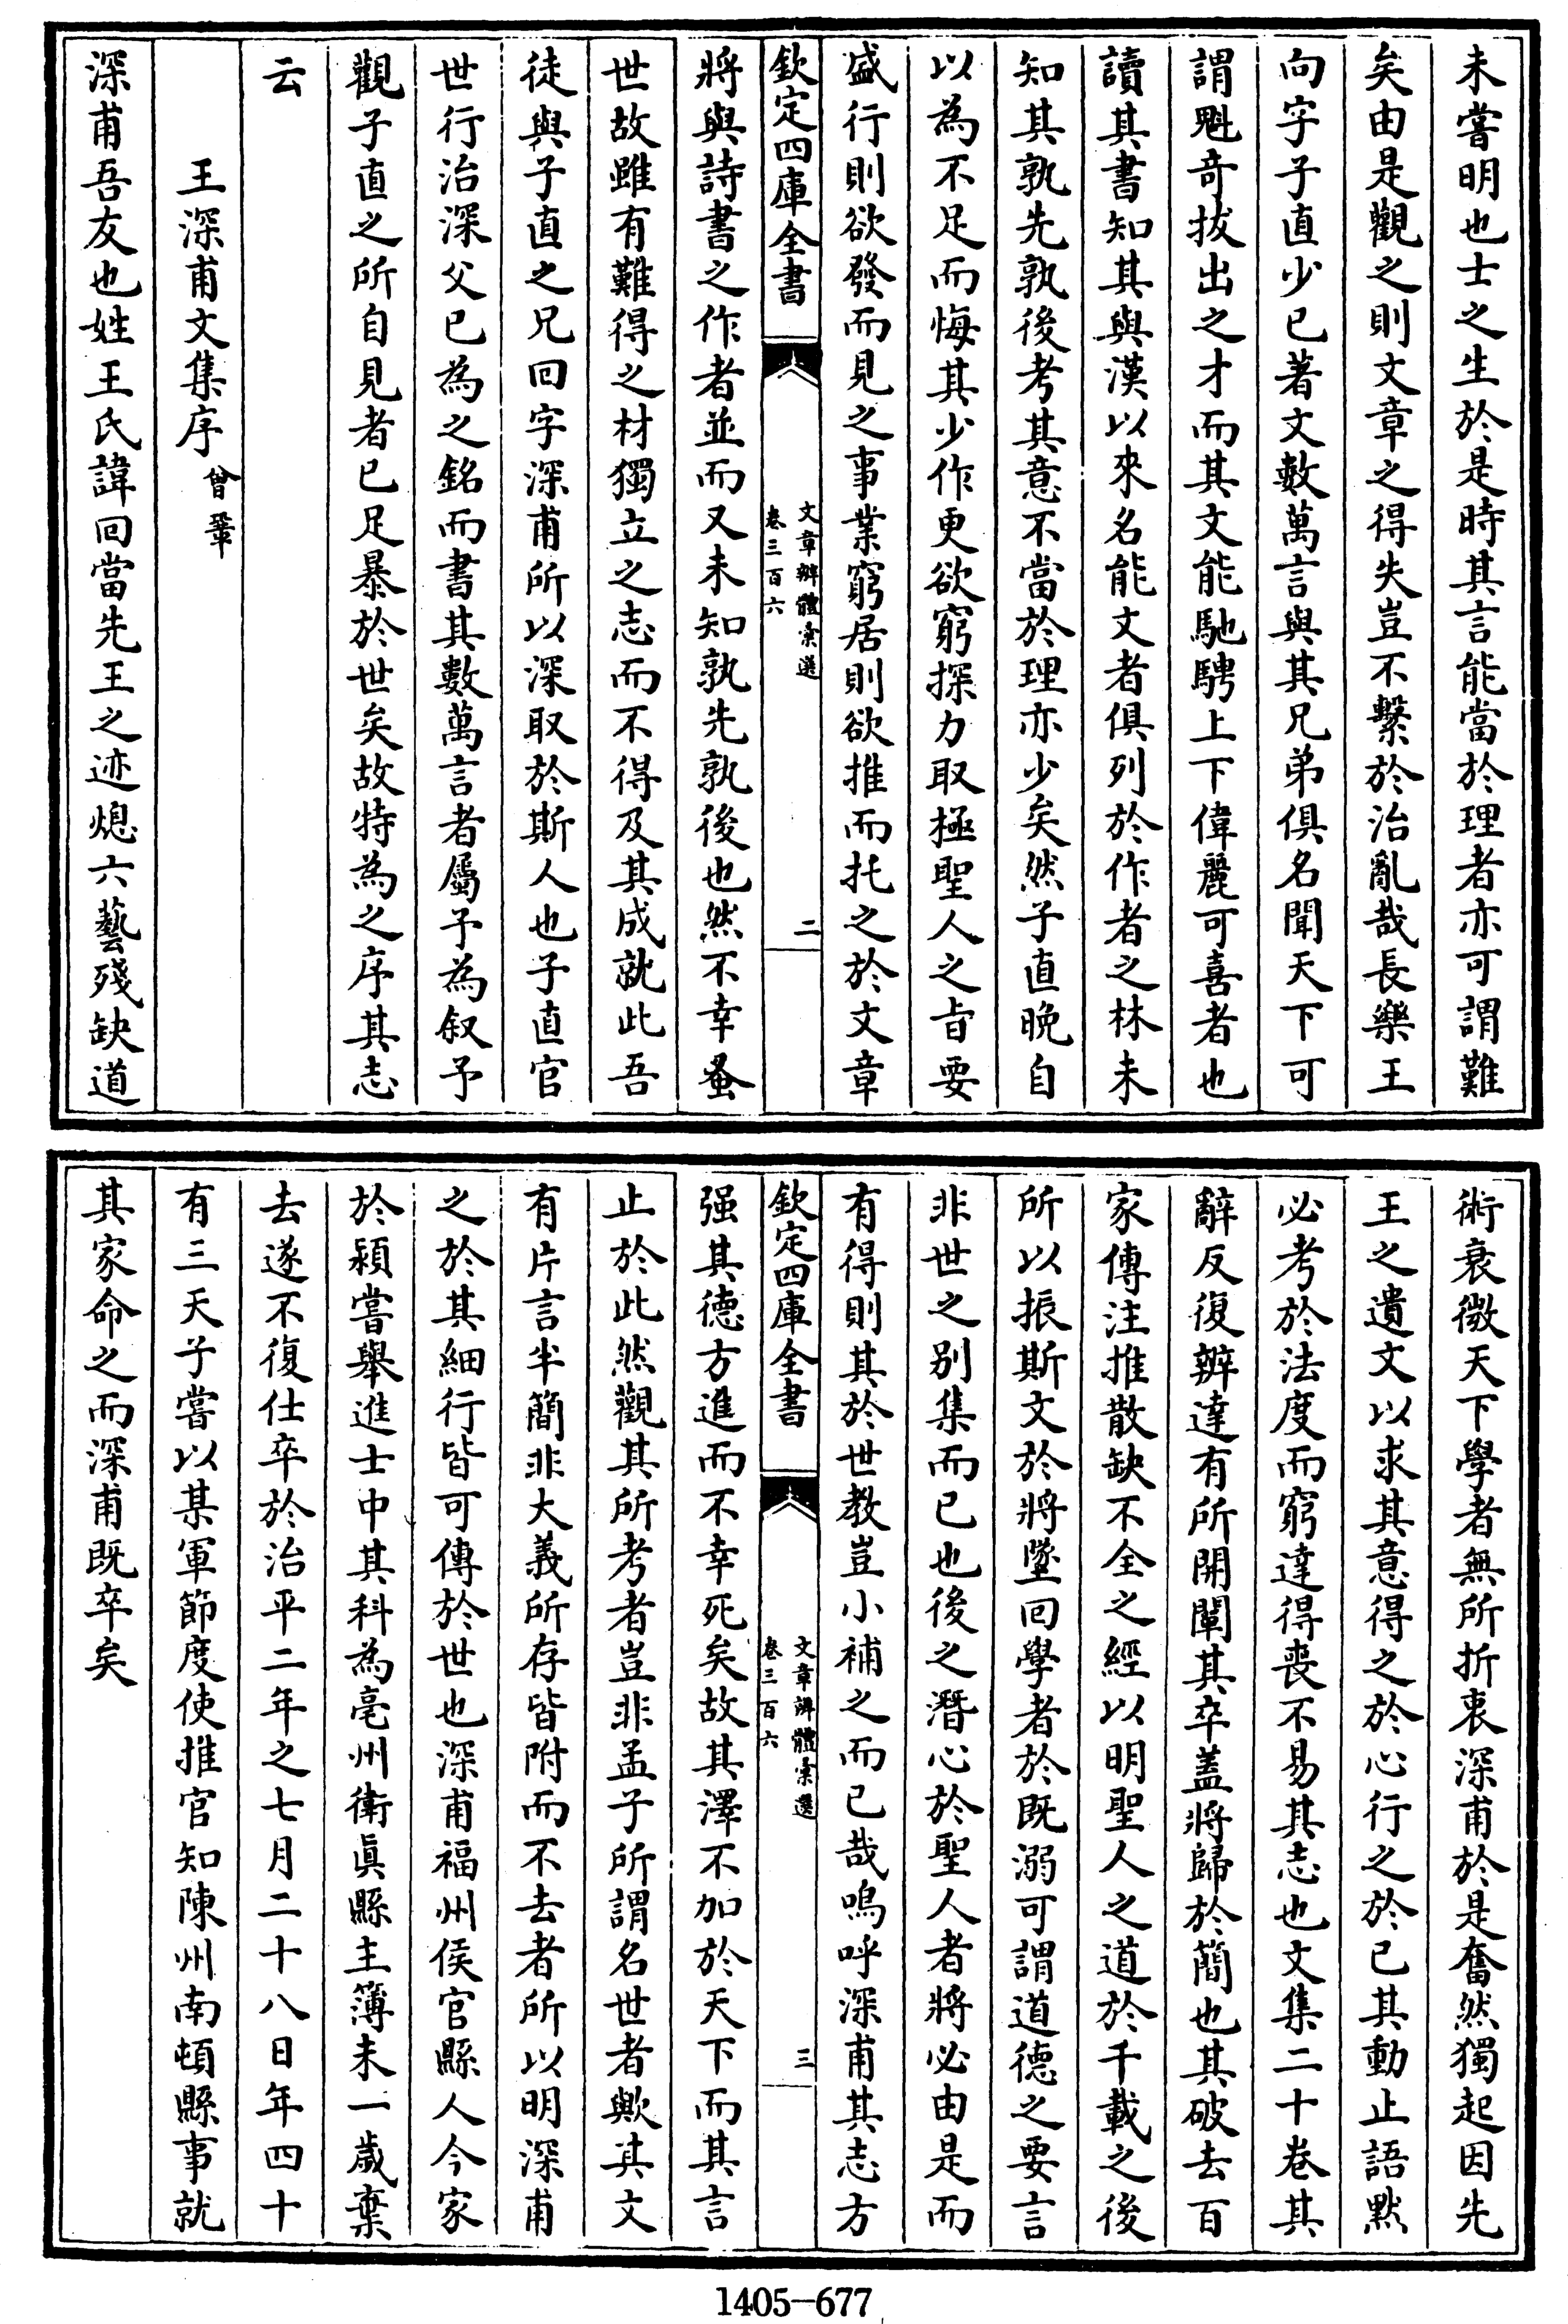 未嘗明也士之生於是時其言能當於理者亦可謂難
矣由是觀之則文章之得失豈不繫於治亂哉長樂王
向字子直少已著文數萬言與其兄弟俱名聞天下可
謂魁奇拔出之才而其文能馳騁上下偉麗可喜者也
讀其書知其與漢以來名能文者俱列於作者之林未
知其孰先孰後考其意不當於理亦少矣然子直晚自
以為不足而悔其少作更欲窮探力取極聖人之旨要
盛行則欲發而見之事業窮居則欲推而托之於文章
欽定四庫全書
文章辨體彙選
卷三百六
二
將與詩書之作者並而又未知孰先孰後也然不幸蚤
世故雖有難得之材獨立之志而不得及其成就此吾
徒與子直之兄回字深甫所以深取於斯人也子直官
世行治深父已為之銘而書其數萬言者屬予為叙予
觀子直之所自見者已足暴於世矣故特為之序其志
云
王深甫文集序 曾鞏
深甫吾友也姓王氏諱回當先王之迹熄六藝殘缺道
術衰微天下學者無所折衷深甫於是奮然獨起因先
王之遺文以求其意得之於心行之於已其動止語默
必考於法度而窮達得喪不易其志也文集二十卷其
辭反復辨達有所開闡其卒蓋將歸於簡也其破去百
家傳注推散缺不全之經以明聖人之道於千載之後
所以振斯文於將墜回學者於既溺可謂道德之要言
非世之別集而已也後之潛心於聖人者將必由是而
有得則其於世教豈小補之而已哉嗚呼深甫其志方
欽定四庫全書
文章辨體彙選
卷三百六
三
强其德方進而不幸死矣故其澤不加於天下而其言
止於此然觀其所考者豈非孟子所謂名世者歟其文
有片言半簡非大義所存皆附而不去者所以明深甫
之於其細行皆可傳於世也深甫福州侯官縣人今家
於潁嘗舉進士中其科為亳州衛眞縣主簿未一歲棄
去遂不復仕卒於治平二年之七月二十八日年四十
有三天子嘗以某軍節度使推官知陳州南頓縣事就
其家命之而深甫既卒矣
1405-677